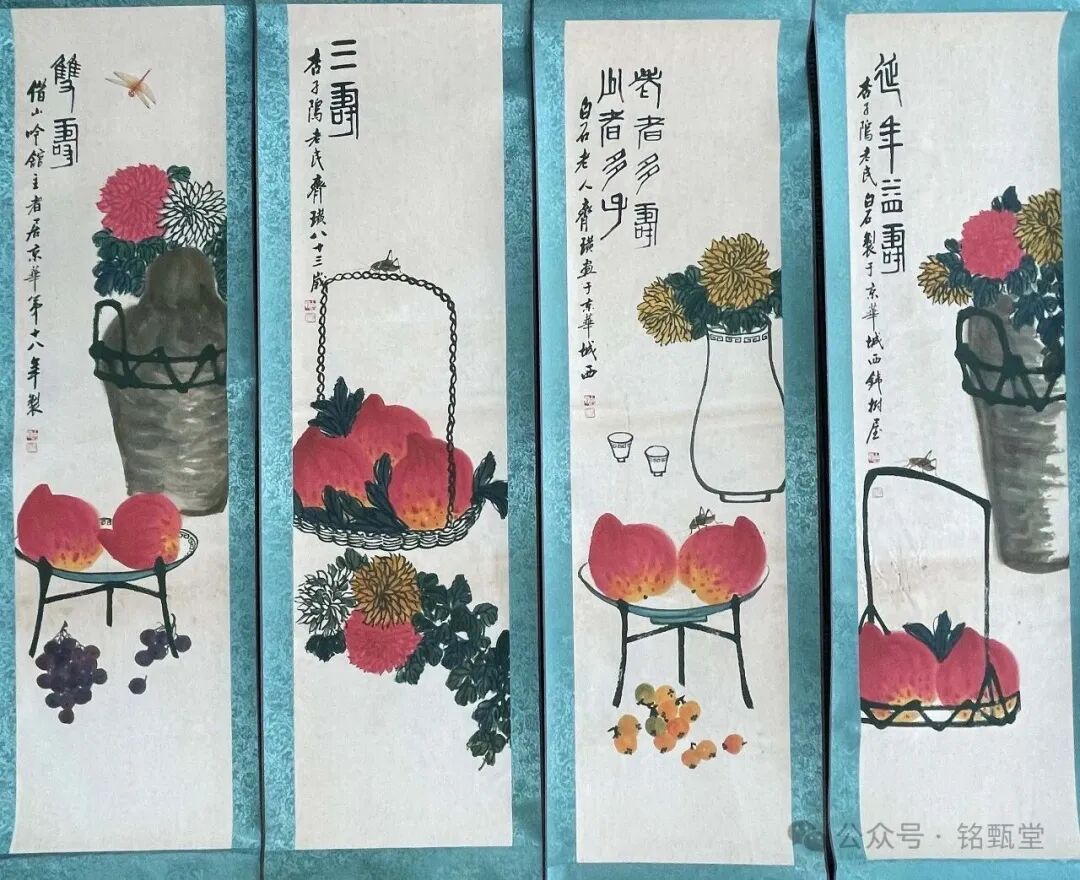 雙壽
借山吟館主者居京華第十八年製
三壽
杏子隖老民齊璜八十三歲
者多壽
者多子
白石老人齊璜畫于京華城西
延年益壽
杏子隖老民白石製于京華城西鉄柵屋
公众号·铭甄堂